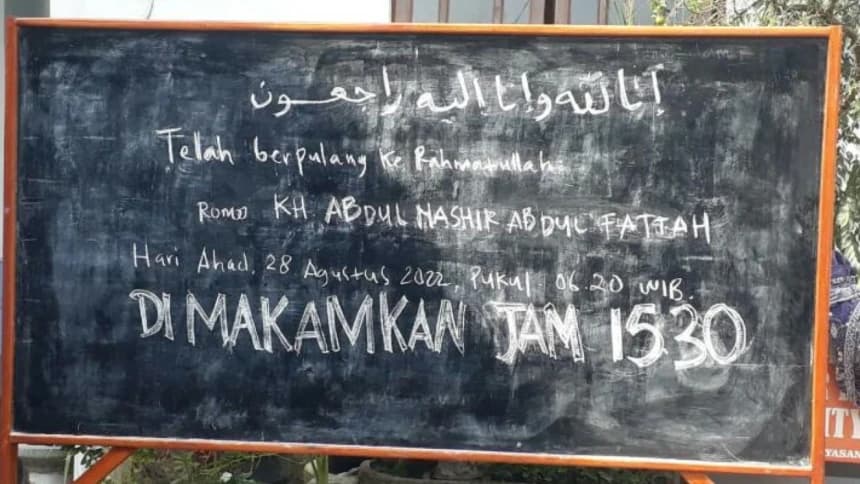 إنا لله وإنا إليه راجعون
Telah berpulang ke Rahmatullah
Romo KH ABDUL NASHIR ABDUL FATTAH
Hari Ahad, 28 Agustus 2022, Pukul 06.20 WIB.
DIMAKAMKAN JAM 15.30
YASAN